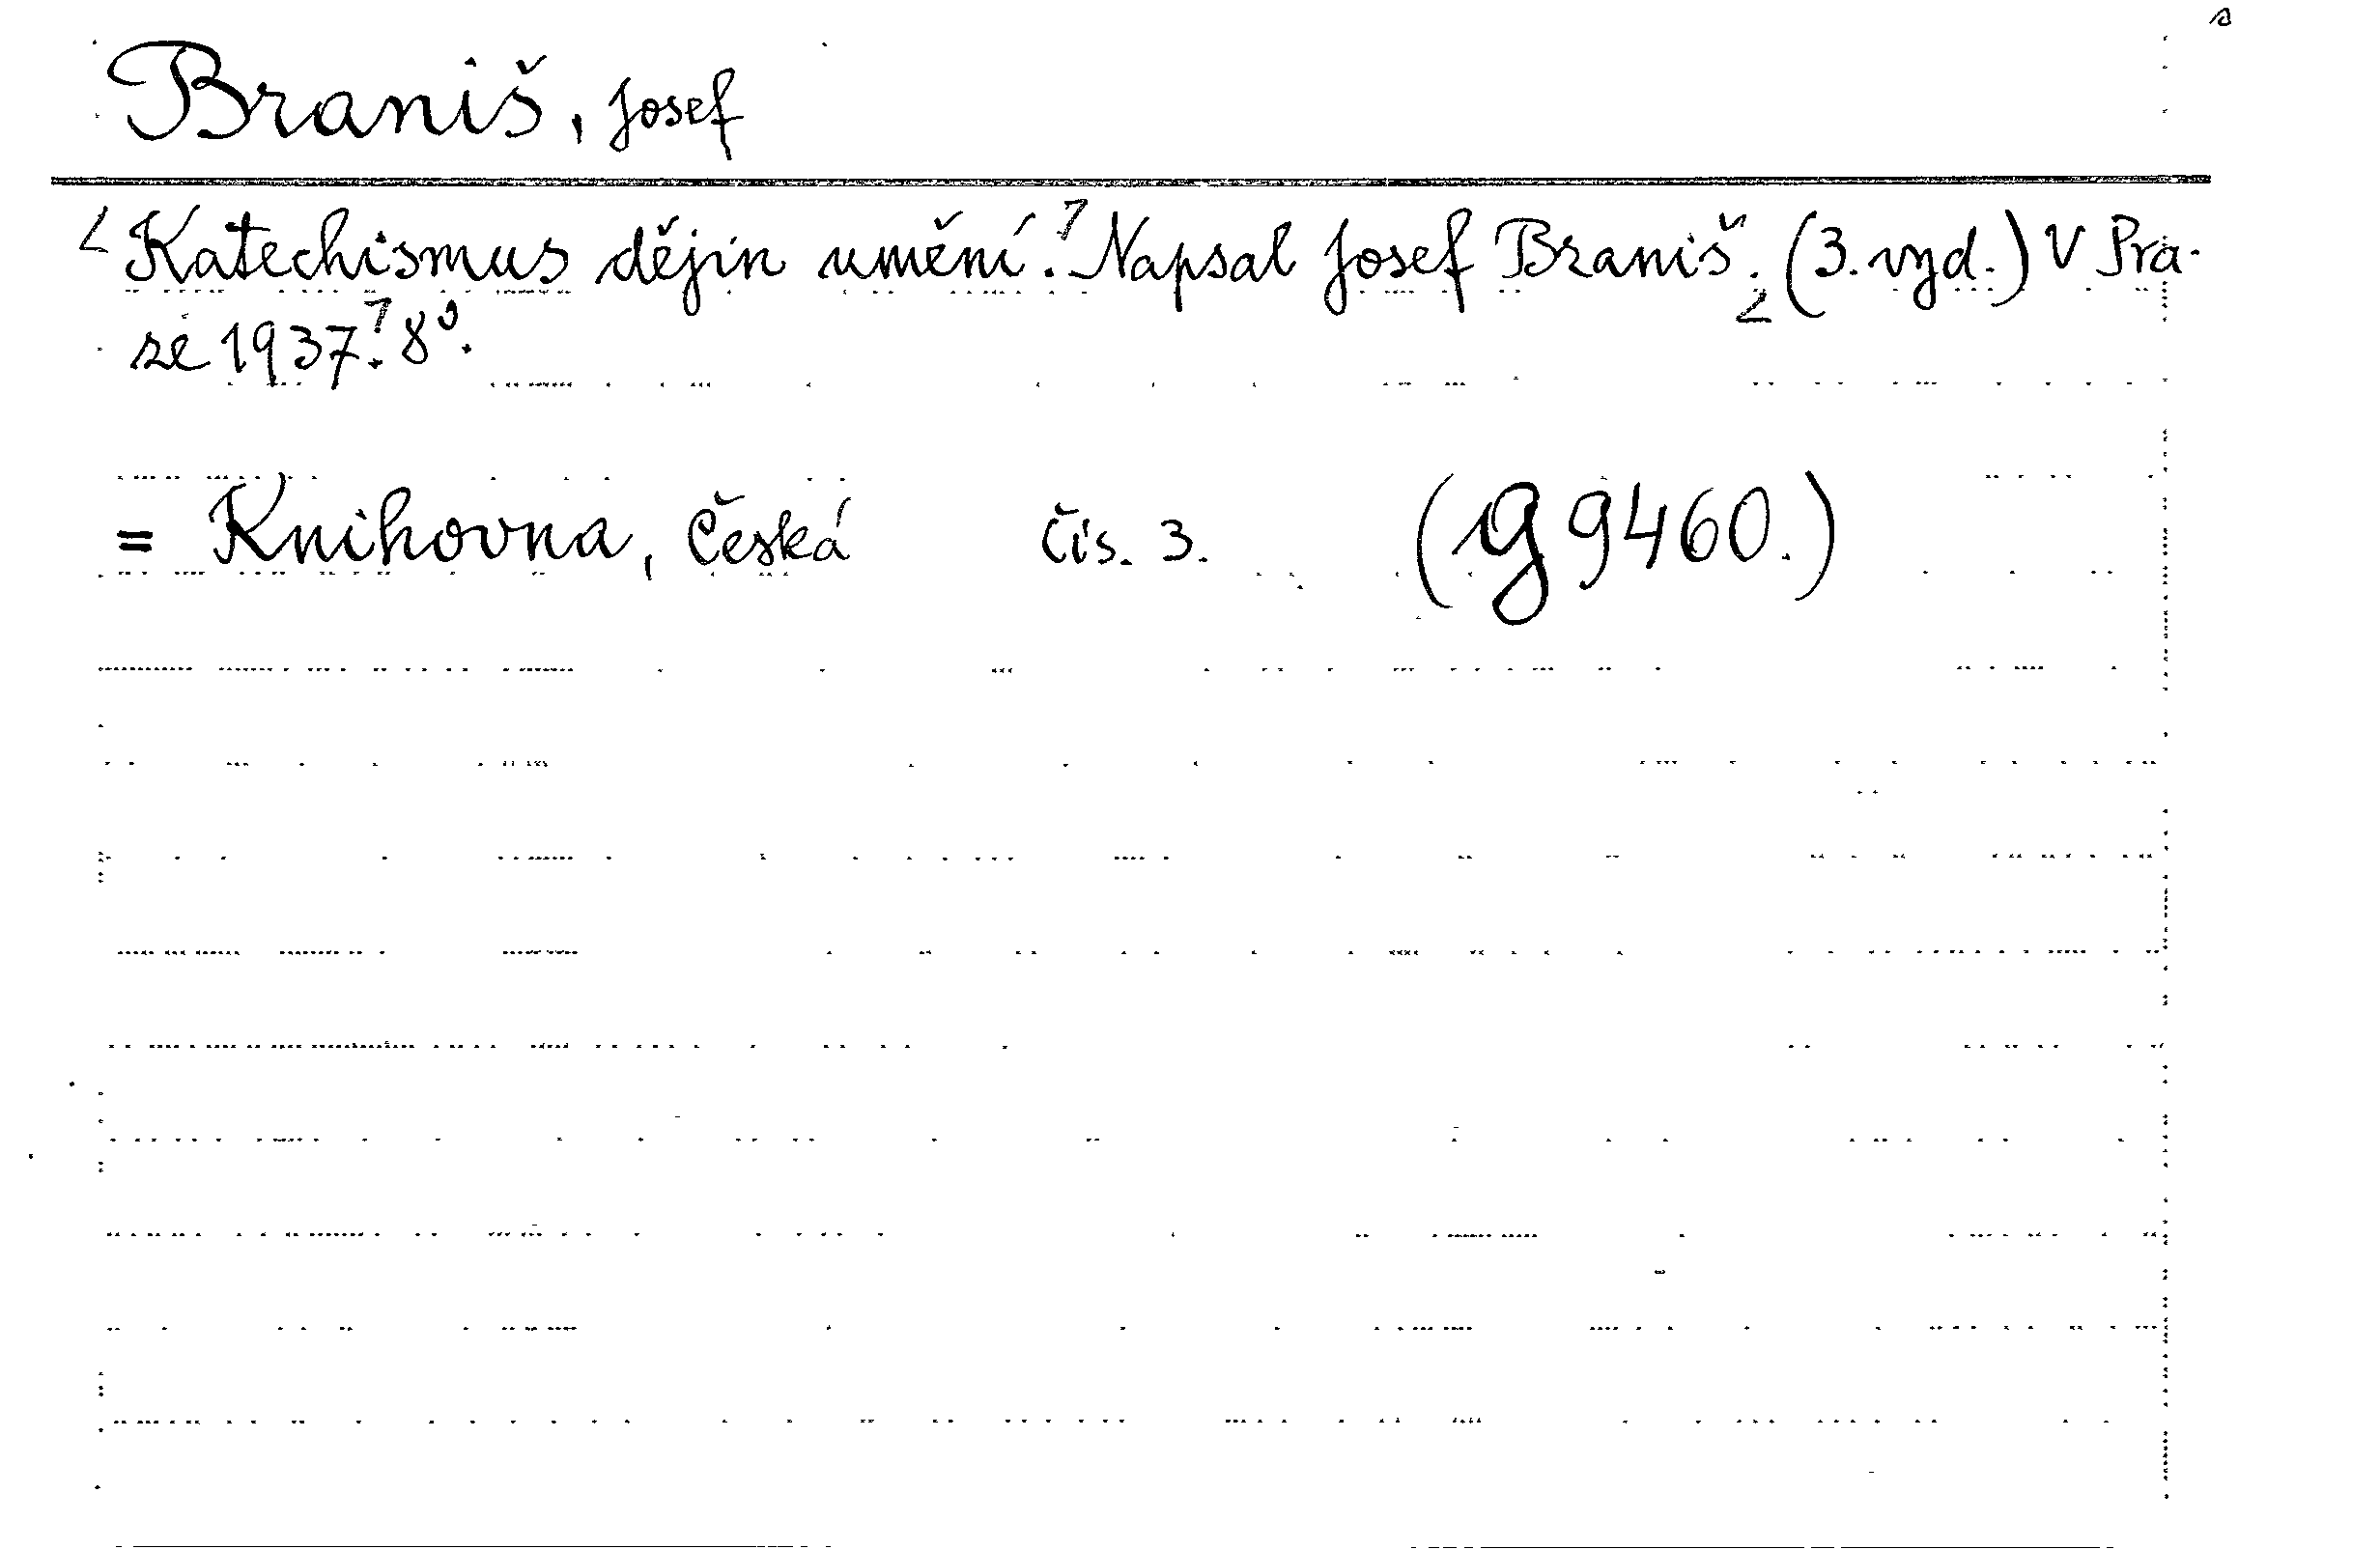 s
Braniš, Josef
Katechismus dějin umění. Napsal Josef Braniš. (3. vyd.) V Pra-
ze 1937. 8°.
= Knihovna, Česká čís. 3. (G 9460.)